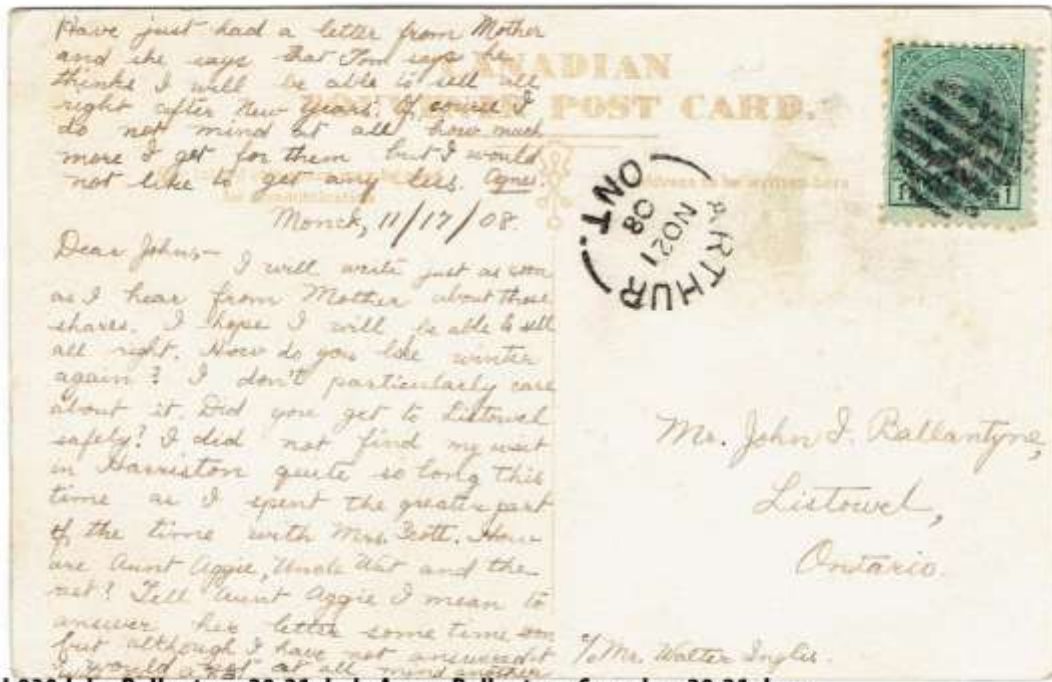 Have just had a letter from Mother
and she says that Tom says he
thinks I will be able to sell all
right after New Years. Of course I
do not mind at all how much
more I get for them but I would
not like to get any less. Agnes.
Monck, 11/17/08.
Dear John:—
I will write just as soon
as I hear from Mother about those
shares. I hope I will be able to sell
all right. How do you like winter
again? I don't particularly care
about it. Did you get to Listowel
safely? I did not find my wait
in Harriston quite so long this
time as I spent the greater part
of the time with Mrs. Scott. How
are Aunt Aggie, Uncle Wat and the
rest? Tell Aunt Aggie I mean to
answer her letter some time soon
but although I have not answered it
I would not at all mind another
CANADIAN
POST CARD.
Address to be written here
ARTHUR
NO 21
08
ONT.
Mr. John I. Ballantyne,
Listowel,
Ontario.
c/o Mr. Walter Inglis.